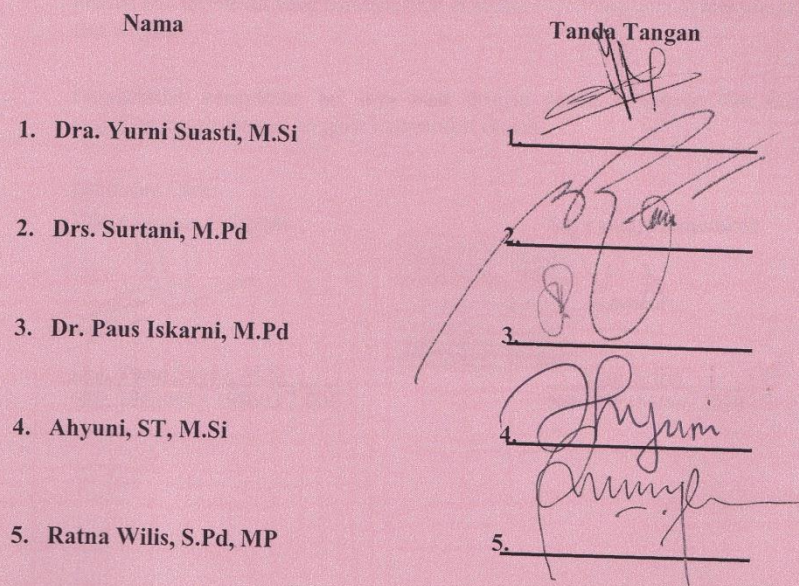 Nama Tanda Tangan
1. Dra. Yurni Suasti, M.Si 1.
2. Drs. Surtani, M.Pd 2.
3. Dr. Paus Iskarni, M.Pd 3.
4. Ahyuni, ST, M.Si 4. Ahyuni
5. Ratna Wilis, S.Pd, MP 5.